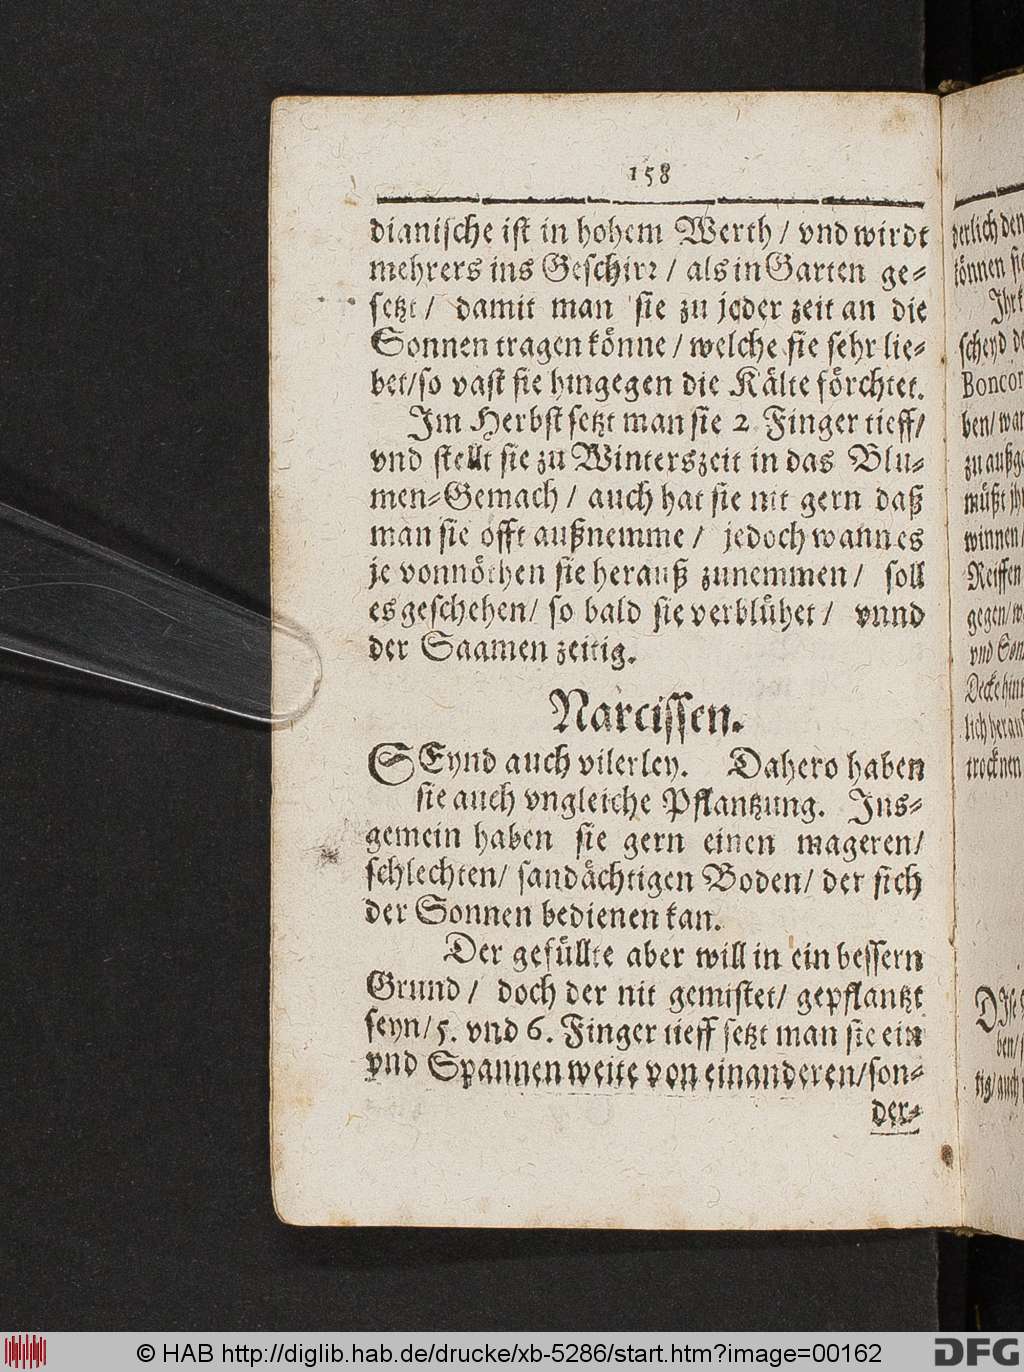 158
dianische ist in hohem Werth / vnd wirdt
mehrers ins Geschirr / als in Garten ge-
setzt / damit man sie zu jeder zeit an die
Sonnen tragen könne / welche sie sehr lie-
bet/ so vast sie hingegen die Kälte förchtet.
Im Herbst setzt man sie 2 Finger tieff/
vnd stellt sie zu Winterszeit in das Blu-
men-Gemach / auch hat sie nit gern daß
man sie offt außnemme / jedoch wann es
je vonnöthen sie herauß zunemmen / soll
es geschehen/ so bald sie verblühet / vnnd
der Saamen zeitig.
Narcissen.
SEynd auch vilerley. Dahero haben
sie auch vngleiche Pflantzung. Ins-
gemein haben sie gern einen mageren/
schlechten/ sandächtigen Boden/ der sich
der Sonnen bedienen kan.
Der gefüllte aber will in ein bessern
Grund / doch der nit gemistet/ gepflantzt
seyn/ 5. vnd 6. Finger tieff setzt man sie ein
vnd Spannen weite von einanderen/ son-
der-
verlich den
können sie
scheyd
Boncor
ben/
zu
müßt
winnen/
Reiffen
gegen/
vnd
Decke
lich
trocknen
ben/
tig/ auch
© HAB http://diglib.hab.de/drucke/xb-5286/start.htm?image=00162
DFG